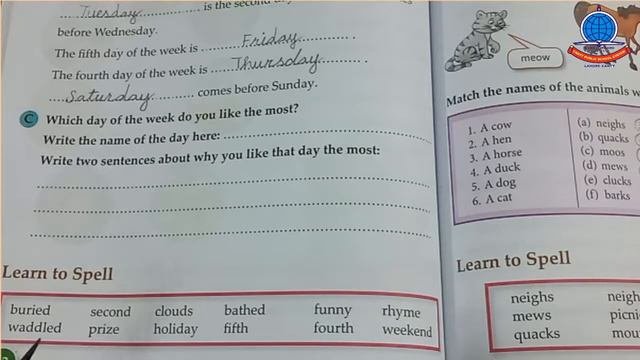 Tuesday is the second
before Wednesday.
The fifth day of the week is Friday
The fourth day of the week is Thursday
Saturday comes before Sunday.
C Which day of the week do you like the most?
Write the name of the day here:
Write two sentences about why you like that day the most:
Learn to Spell
buried second clouds bathed funny rhyme
waddled prize holiday fifth fourth weekend
meow
Match the names of the animals
1. A cow (a) neighs
2. A hen (b) quacks
3. A horse (c) moos
4. A duck (d) mews
5. A dog (e) clucks
6. A cat (f) barks
Learn to Spell
neighs neigh
mews picni
quacks mou